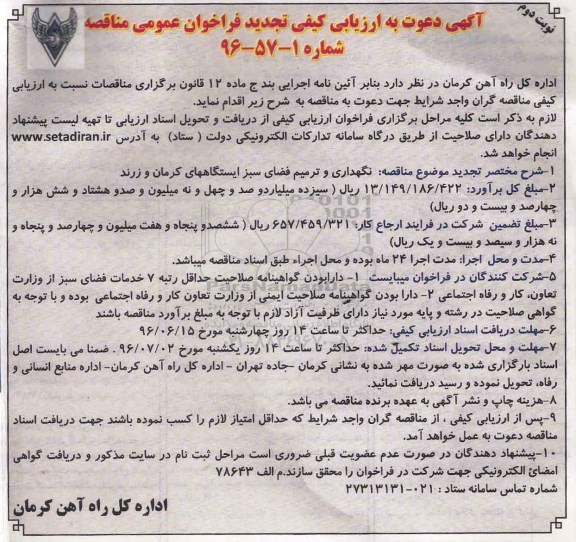 نوبت دوم
آگهی دعوت به ارزیابی کیفی تجدید فراخوان عمومی مناقصه
شماره ۱-۵۷-۹۶
اداره کل راه آهن کرمان در نظر دارد بنابر آئین نامه اجرایی بند ج ماده ۱۲ قانون برگزاری مناقصات نسبت به ارزیابی
کیفی مناقصه گران واجد شرایط جهت دعوت به مناقصه به شرح زیر اقدام نماید.
لازم به ذکر است کلیه مراحل برگزاری فراخوان ارزیابی کیفی از دریافت و تحویل اسناد ارزیابی تا تهیه لیست پیشنهاد
دهندگان دارای صلاحیت از طریق درگاه سامانه تدارکات الکترونیکی دولت ( ستاد) به آدرس www.setadiran.ir
انجام خواهد شد.
۱-شرح مختصر تجدید موضوع مناقصه: نگهداری و ترمیم فضای سبز ایستگاههای کرمان و زرند
۲-مبلغ کل برآورد: ۱۳/۱۴۹/۱۸۶/۴۲۲ ریال ( سیزده میلیاردو صد و چهل و نه میلیون و صدو هشتاد و شش هزار و
چهارصد و بیست و دو ریال)
۳-مبلغ تضمین شرکت در فرایند ارجاع کار: ۶۵۷/۴۵۹/۳۲۱ ریال ( ششصدو پنجاه و هفت میلیون و چهارصد و پنجاه و
نه هزار و سیصد و بیست و یک ریال)
۴-مدت و محل اجرا: مدت اجرا ۲۴ ماه بوده و محل اجراء طبق اسناد مناقصه میباشد.
۵-شرکت کنندگان در فراخوان میبایست ۱- دارابودن گواهینامه صلاحیت حداقل رتبه ۷ خدمات فضای سبز از وزارت
تعاون، کار و رفاه اجتماعی ۲- دارا بودن گواهینامه صلاحیت ایمنی از وزارت تعاون کار و رفاه اجتماعی بوده و با توجه به
گواهی صلاحیت در رشته و پایه مورد نیاز دارای ظرفیت آزاد لازم با توجه به مبلغ برآورد مناقصه باشند
۶-مهلت دریافت اسناد ارزیابی کیفی: حداکثر تا ساعت ۱۴ روز چهارشنبه مورخ ۹۶/۰۶/۱۵
۷-مهلت و محل تحویل اسناد تکمیل شده: حداکثر تا ساعت ۱۴ روز یکشنبه مورخ ۹۶/۰۷/۰۲ . ضمنا می بایست اصل
اسناد بارگزاری شده به صورت مهر شده به نشانی کرمان -جاده تهران - اداره کل راه آهن کرمان- اداره منابع انسانی و
رفاه، تحویل نموده و رسید دریافت نمائید.
۸-هزینه چاپ و نشر آگهی به عهده برنده مناقصه می باشد.
۹-پس از ارزیابی کیفی ، از مناقصه گران واجد شرایط که حداقل امتیاز لازم را کسب نموده باشند جهت دریافت اسناد
مناقصه دعوت به عمل خواهد آمد.
۱۰-پیشنهاد دهندگان در صورت عدم عضویت قبلی ضروری است مراحل ثبت نام در سایت مذکور و دریافت گواهی
امضائ الکترونیکی جهت شرکت در فراخوان را محقق سازند.م الف ۷۸۶۴۳
شماره تماس سامانه ستاد : ۰۲۱-۲۷۳۱۳۱۳۱
اداره کل راه آهن کرمان